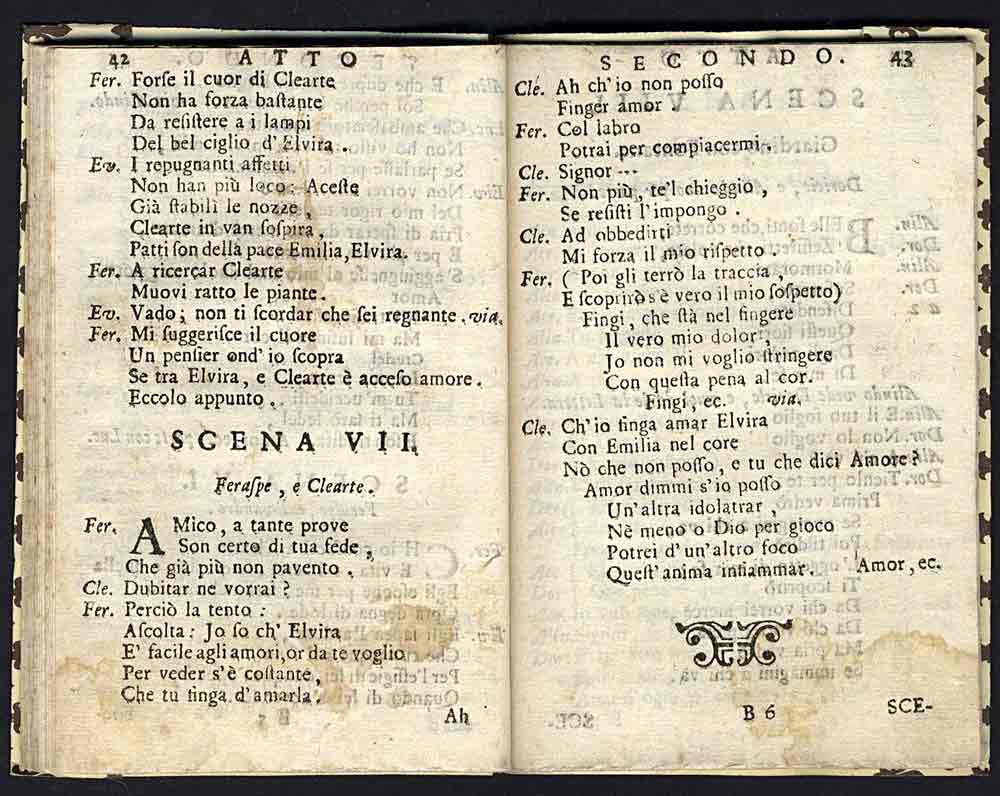 42 ATTO
Fer. Forſe il cuor di Clearte
Non ha forza baſtante
Da reſiſtere a i lampi
Del bel ciglio d' Elvira.
Ev. I repugnanti affetti
Non han più loco: Aceſte
Già ſtabilì le nozze,
Clearte in van ſoſpira,
Patti ſon della pace Emilia, Elvira.
Fer. A ricerçar Clearte
Muovi ratto le piante.
Ev. Vado; non ti ſcordar che ſei regnante. via.
Fer. Mi ſuggeriſce il cuore
Un penſier ond' io ſcopra
Se tra Elvira, e Clearte è acceſo amore.
Eccolo appunto.
SCENA VII.
Feraſpe, e Clearte.
Fer. AMico, a tante prove
Son certo di tua fede,
Che già più non pavento.
Cle. Dubitar ne vorrai?
Fer. Perciò la tento:
Aſcolta: Jo ſo ch' Elvira
E' facile agli amori, or da te voglio
Per veder s'è coſtante,
Che tu finga d'amarla.
Ah
SECONDO. 43
Cle. Ah ch' io non poſſo
Finger amor
Fer. Col labro
Potrai per compiacermi.
Cle. Signor ---
Fer. Non più, te'l chieggio,
Se reſiſti l' impongo.
Cle. Ad obbedirti
Mi forza il mio riſpetto.
Fer. (Poi gli terrò la traccia,
E ſcoprirò s'è vero il mio ſoſpetto)
Fingi, che ſtà nel fingere
Il vero mio dolor,
Jo non mi voglio ſtringere
Con queſta pena al cor.
Fingi, ec. via.
Cle. Ch' io finga amar Elvira
Con Emilia nel core
Nò che non poſſo, e tu che dici Amore?
Amor dimmi s' io poſſo
Un' altra idolatrar,
Nè meno o Dio per gioco
Potrei d' un' altro foco
Queſt' anima infiammar. Amor, ec.
B 6 SCE-